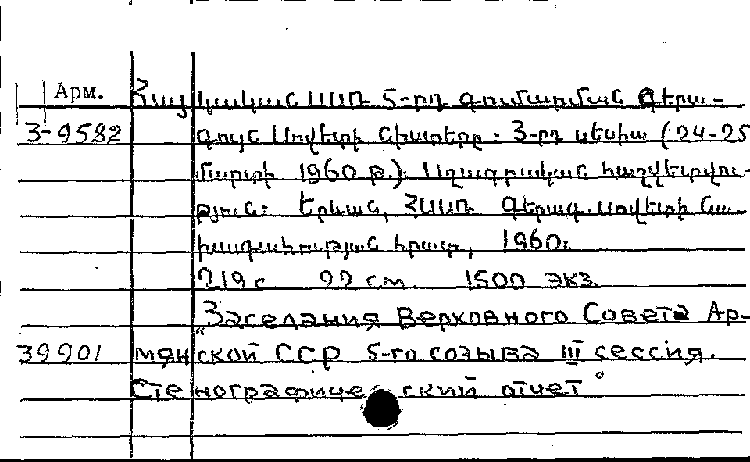 Арм. Հայկական ՍՍՌ 5-րդ գումարման Գերա-
3-9582 գույն Սովետի նիստերը: 3-րդ սեսիա (24-25
մարտի 1960 թ.): Սղագրական հաշվետվու-
թյուն: Երևան, ՀՍՍՌ Գերագ. Սովետի Նա-
խագահության հրատ., 1960:
219 с 22 см. 1500 экз.
„Заседания Верховного Совета Ар-
39901 мянской ССР 5-го созыва III сессия.
Стенографический отчет"